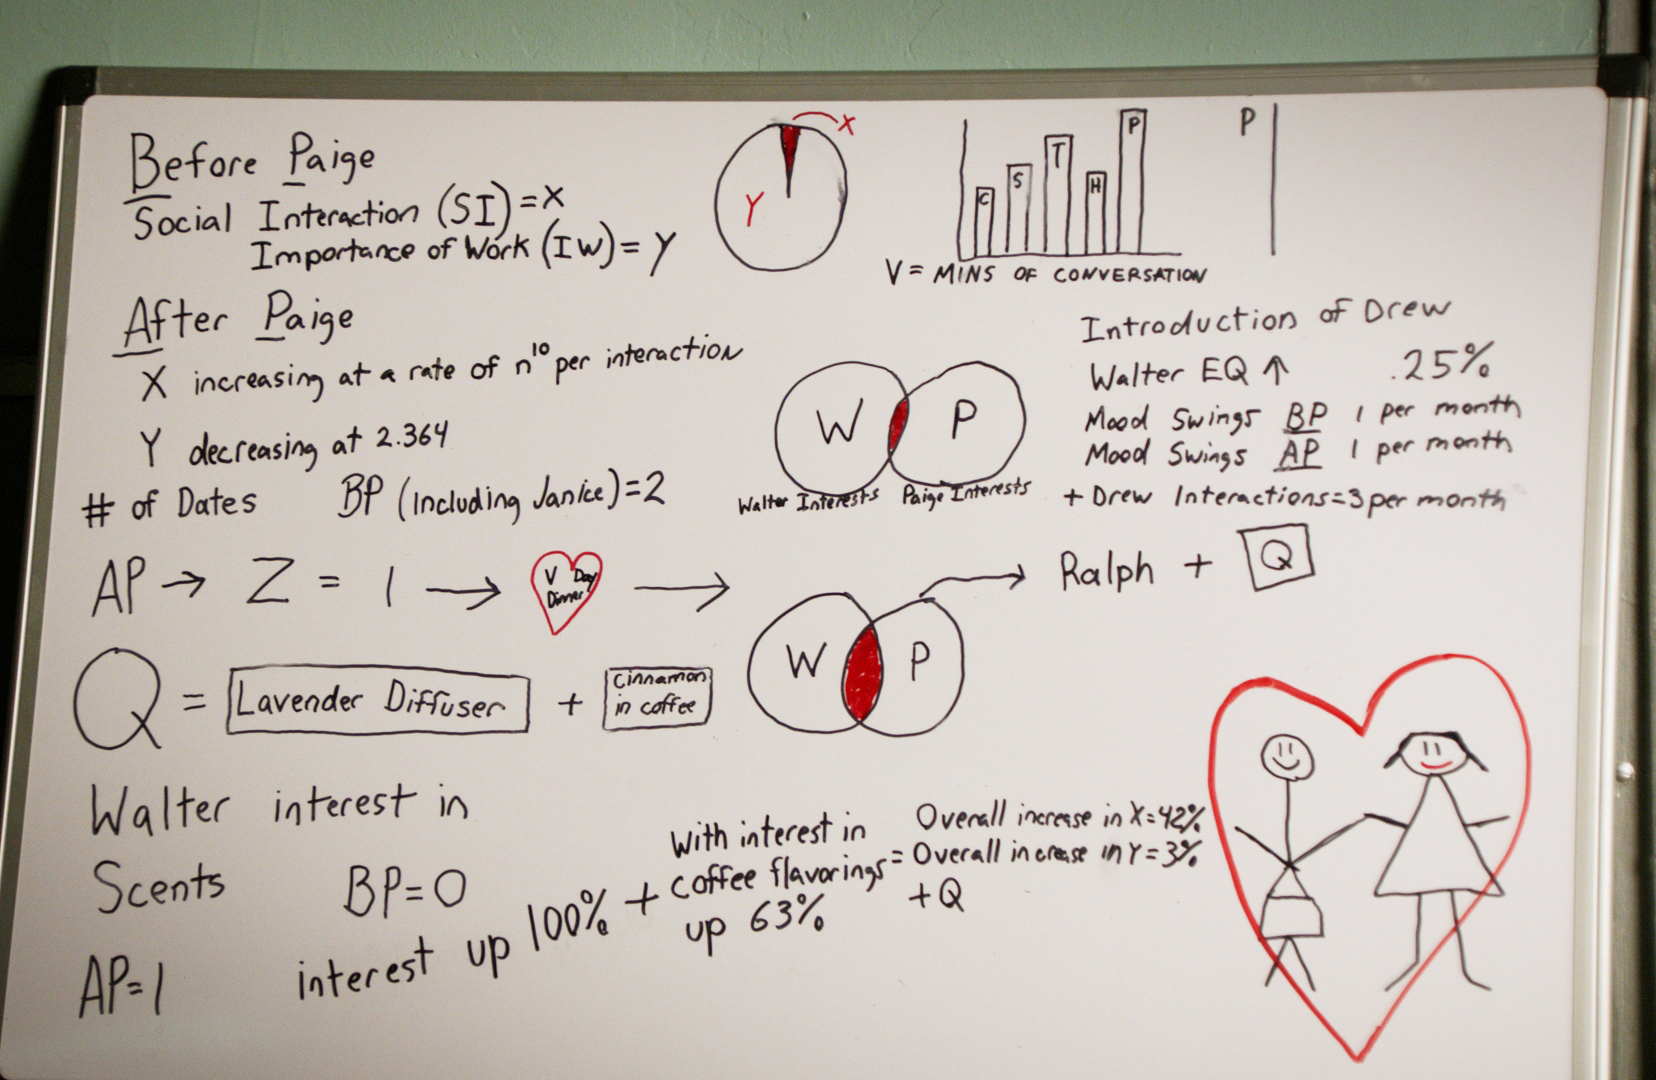 Before Paige
Social Interaction (SI) = X
Importance of Work (IW) = Y
X
Y
C
S
T
H
P
V = MINS OF CONVERSATION
P
After Paige
X increasing at a rate of n¹⁰ per interaction
Y decreasing at 2.364
# of Dates BP (Including Janice) = 2
W
P
Walter Interests
Paige Interests
Introduction of Drew
Walter EQ ↑ .25%
Mood Swings BP 1 per month
Mood Swings AP 1 per month
+ Drew Interactions = 3 per month
AP → Z = 1 →
V Day
Dinner
→
W
P
→ Ralph + Q
Q = Lavender Diffuser + Cinnamon
in coffee
Walter interest in
Scents BP = 0
AP = 1 interest up 100% +
With interest in
coffee flavorings =
up 63%
Overall increase in X = 42%
Overall increase in Y = 3%
+ Q